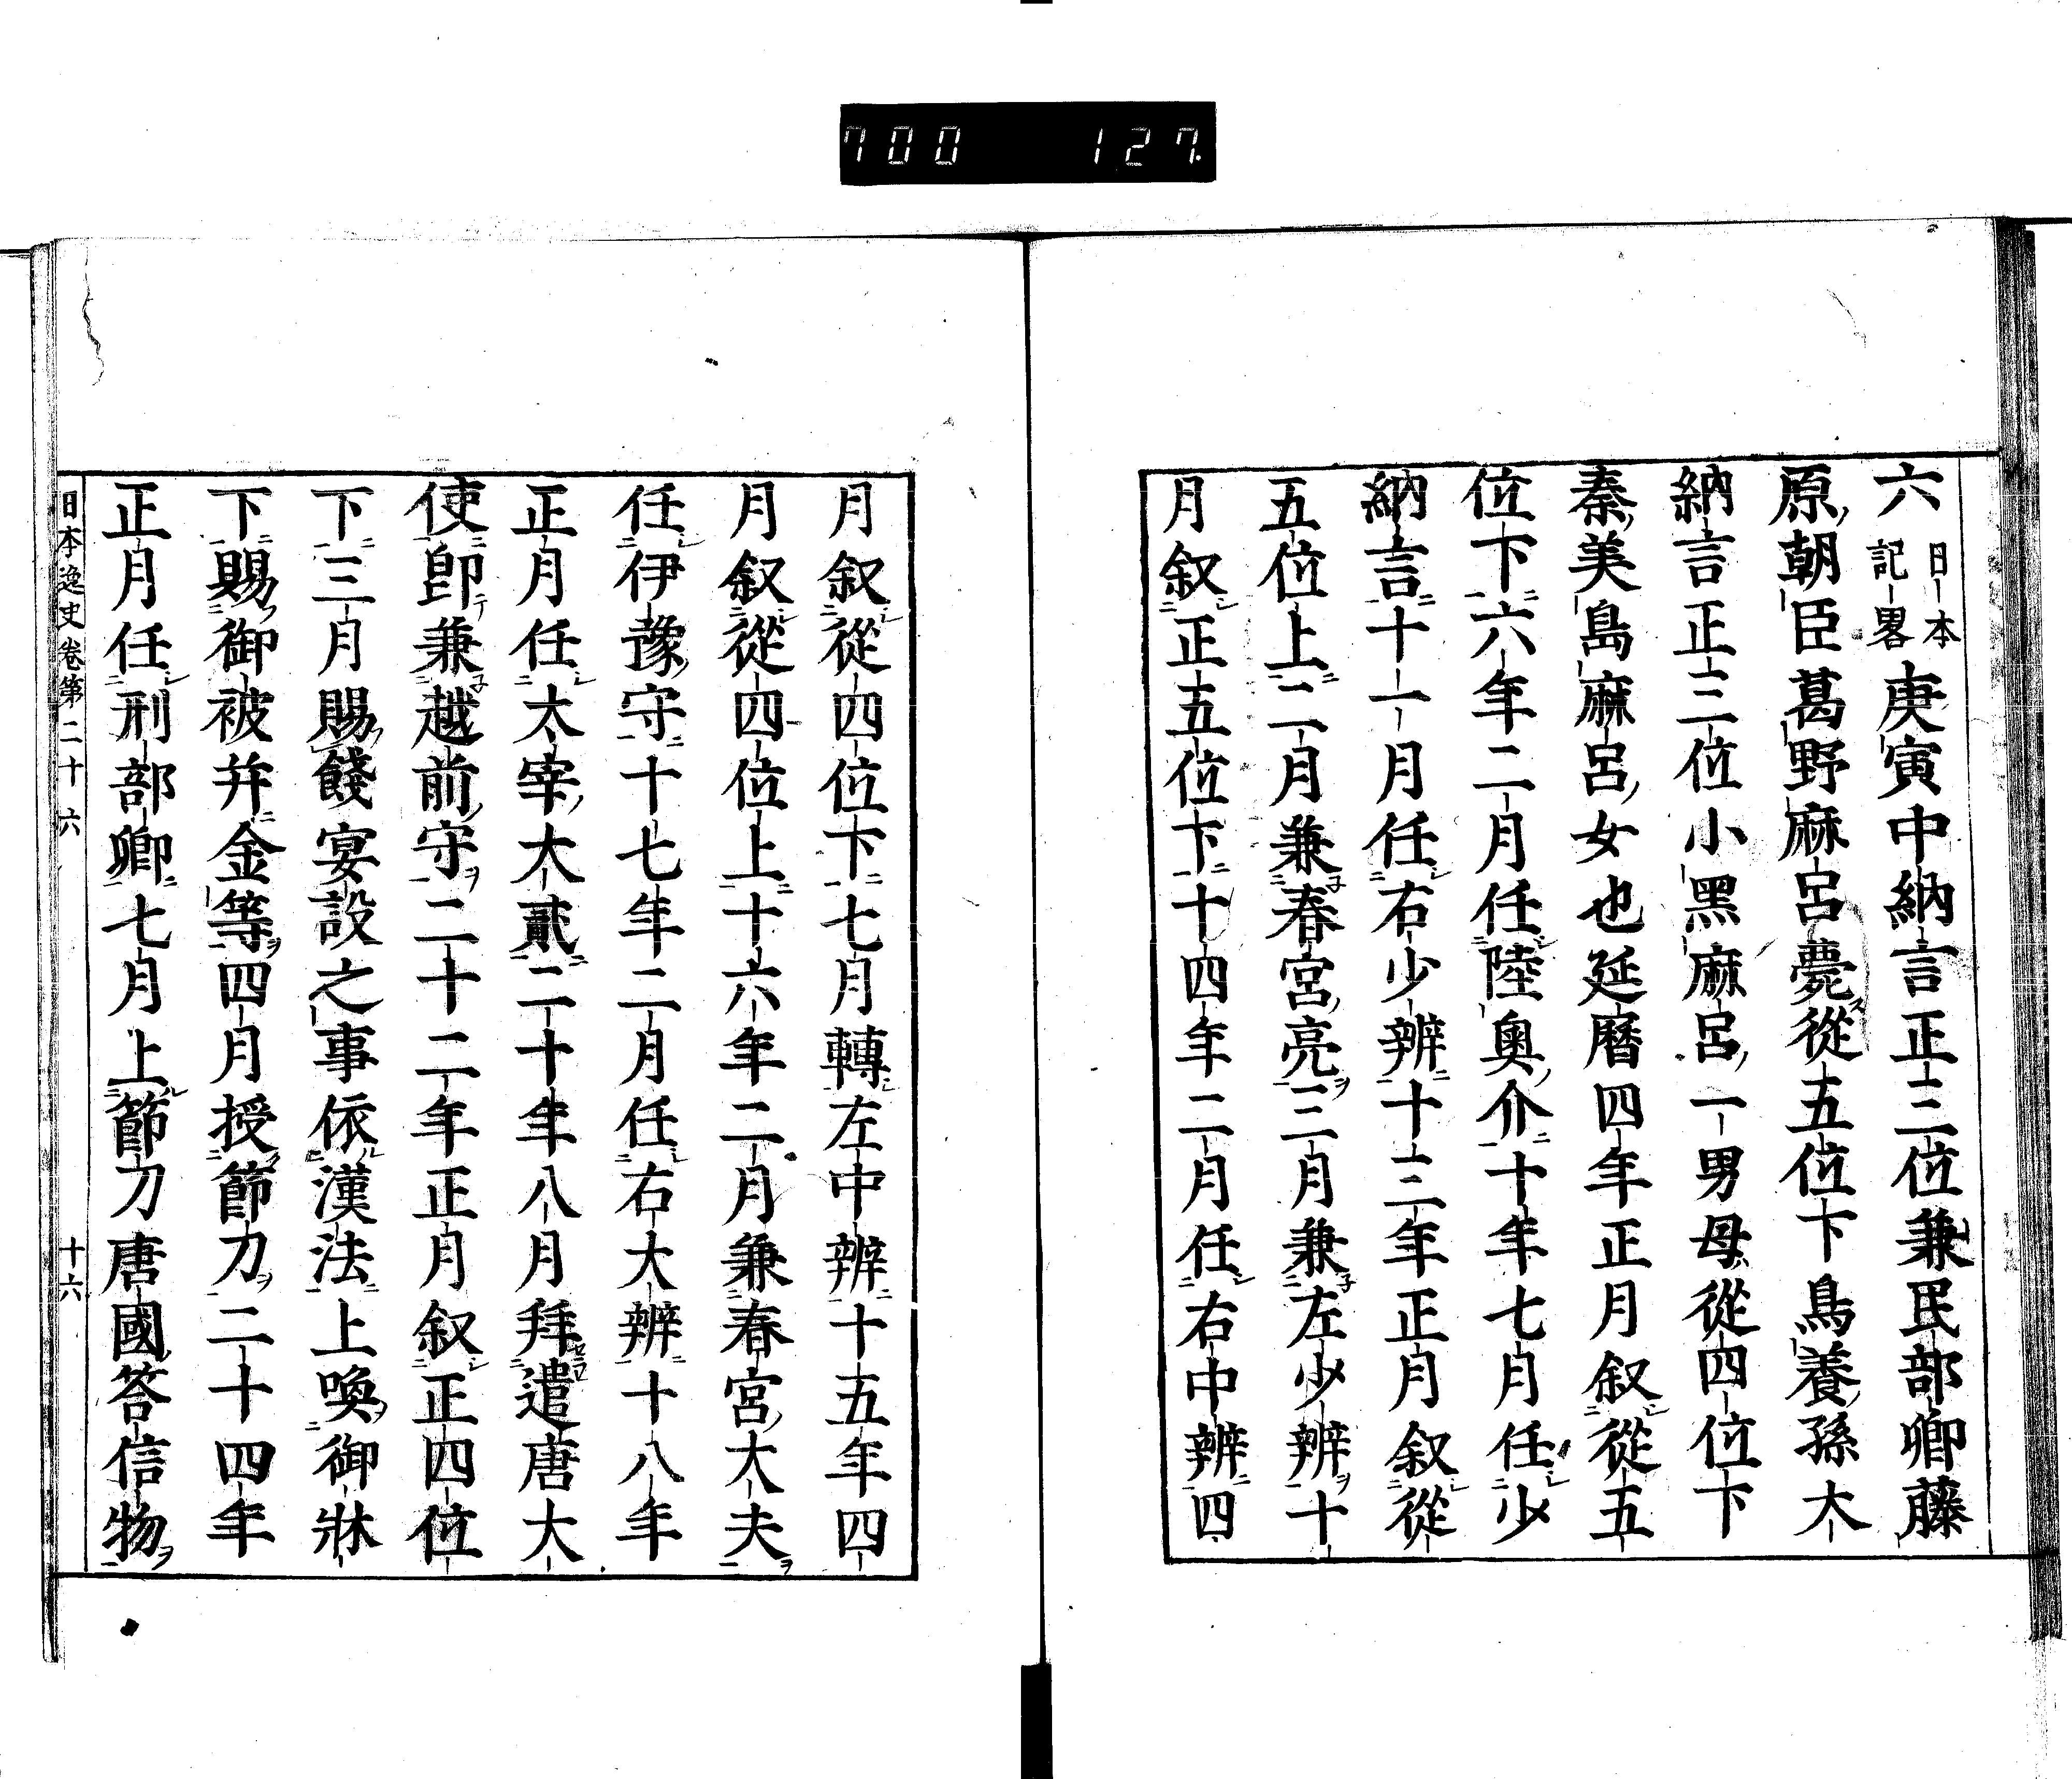 700 127
六日本記畧庚寅中納言正三位兼民部卿藤
原朝臣葛野麻呂薨從五位下鳥養孫大
納言正三位小黑麻呂一男母從四位下
秦美島麻呂女也延曆四年正月叙從五
位下六年二月任陸奧介十年七月任少
納言十一月任右少辨十三年正月叙從
五位上二月兼春宮亮三月兼左少辨十
月叙正五位下十四年二月任右中辨四
月叙從四位下七月轉左中辨十五年四
月叙從四位上十六年二月兼春宮大夫
任伊豫守十七年二月任右大辨十八年
正月任太宰大貳二十年八月拜遣唐大
使卽兼越前守二十二年正月叙正四位
下三月賜餞宴設之事依漢法上喚御牀
下賜御被并金等四月授節刀二十四年
正月任刑部卿七月上節刀唐國荅信物
日本逸史卷第二十六 十六